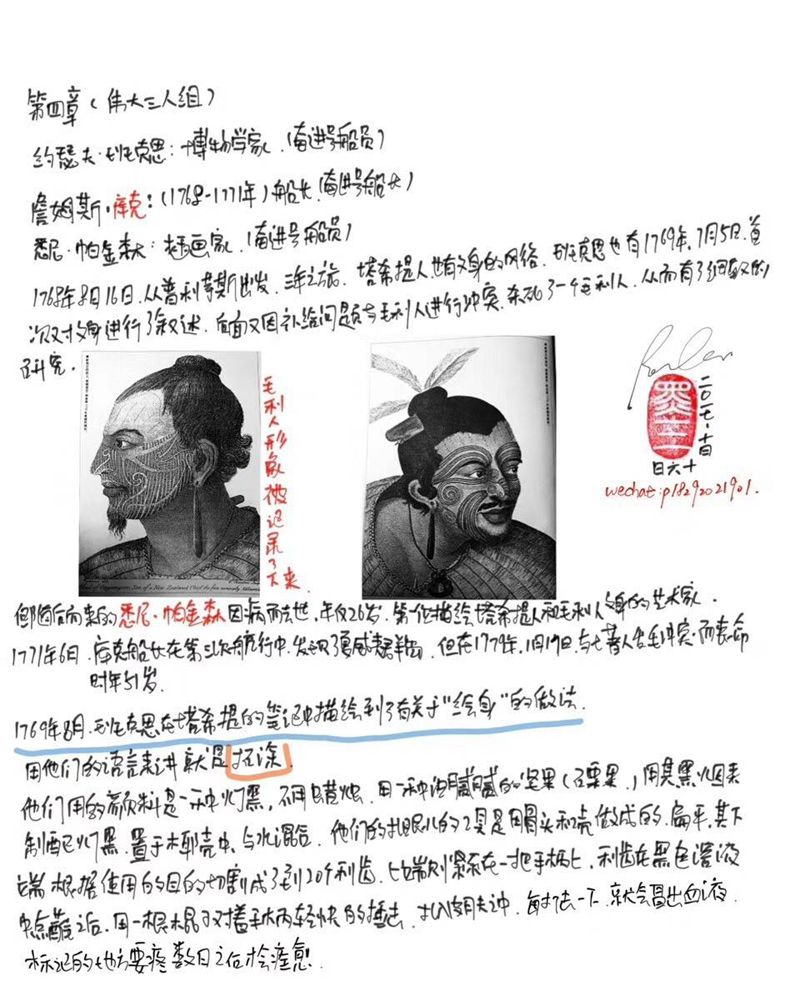 第四章（伟大三人组）
约瑟夫·班克思：博物学家.（奋进号船员）
詹姆斯·库克：（1768-1771年）船长.（奋进号船长）
悉尼·帕金森：插画家.（奋进号船员）
1768年8月16日.从普利茅斯出发.三年之旅.塔希提人也有文身的风俗.班克思也有1769年.7月5日.首
次对文身进行了叙述.后面又因补给问题与毛利人进行冲突.杀死了一个毛利人.从而有了细致的
研究.
毛利人形象被记录了下来.
二〇一七.十月十六日
wechat:p18292021901.
但随后而来的悉尼·帕金森因病而去世.年仅26岁.第一位描绘塔希提人和毛利人文身的艺术家.
1771年6月.库克船长在第三次航行中.发现了夏威夷群岛.但在1779年.1月17日.与土著人发生冲突.而丧命
时年51岁.
1769年8月.班克思在塔希提的笔记中描绘到了有关于“绘身”的做法.
用他们的语言来讲就是打涂.
他们用的颜料是一种灯黑，不用蜡烛.用一种油腻腻的坚果（石栗果.）用其熏烟来
制配灯黑.置于椰壳中.与水混合.他们的扎眼儿的工具是用骨头和壳做成的.扁平.其下
端根据使用的目的切割成了3到20个利齿.上端则紧系在一把手柄上，利齿在黑色溶液
中点蘸之后.用一根木棍对着手柄轻快的捶击.每打一下.就会冒出血液.
标记的地方要疼数日之后才会痊愈.